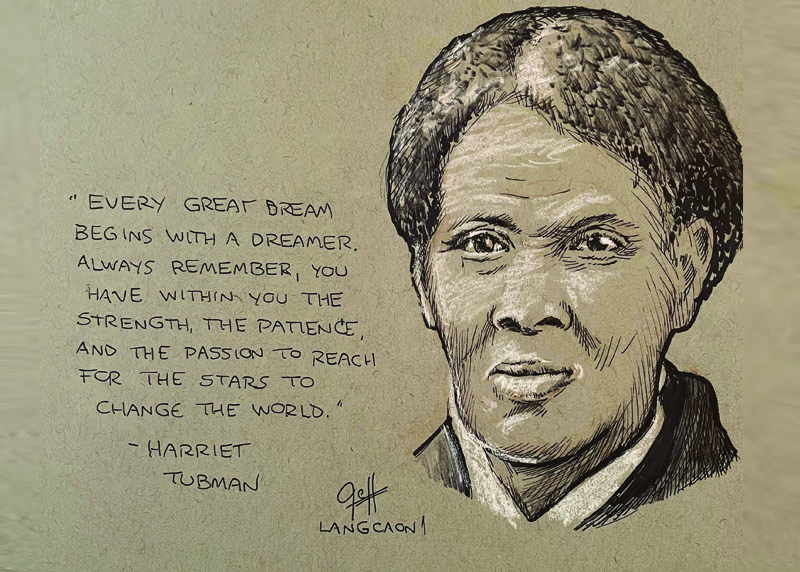 "EVERY GREAT BREAM
BEGINS WITH A DREAMER.
ALWAYS REMEMBER, YOU
HAVE WITHIN YOU THE
STRENGTH, THE PATIENCE,
AND THE PASSION TO REACH
FOR THE STARS TO
CHANGE THE WORLD."
- HARRIET
TUBMAN
Geff
LANGCAON!